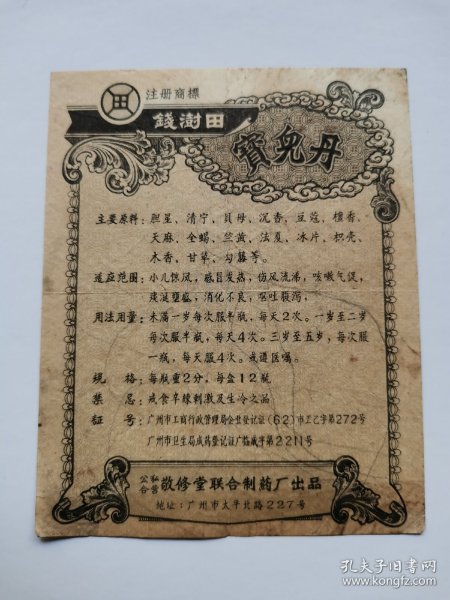 田
注册商標
錢澍田
寶兒丹
主要原料：胆星、清宁、貝母、沉香、豆蔻、檀香、
天麻、全蝎、竺黄、法夏、冰片、枳壳、
木香、甘草、勾籐等。
适应范围：小儿惊风，感冒发热，伤风流涕，咳嗽气促，
痰涎壅盛，消化不良，呕吐腹泻，
用法用量：未滿一岁每次服半瓶，每天2次。一岁至二岁
每次服半瓶，每天4次。三岁至五岁，每次服
一瓶，每天服4次。或遵医嘱。
规格：每瓶重2分，每盒12瓶
禁忌：戒食辛辣刺激及生冷之品
征号：广州市工商行政管理局企业登记证(62)市工乙字第272号
广州市卫生局成药登记证广临威字第2211号
公私合营 敬修堂联合制药厂出品
地址：广州市太平北路227号
孔夫子旧书网
www.kongfz.com